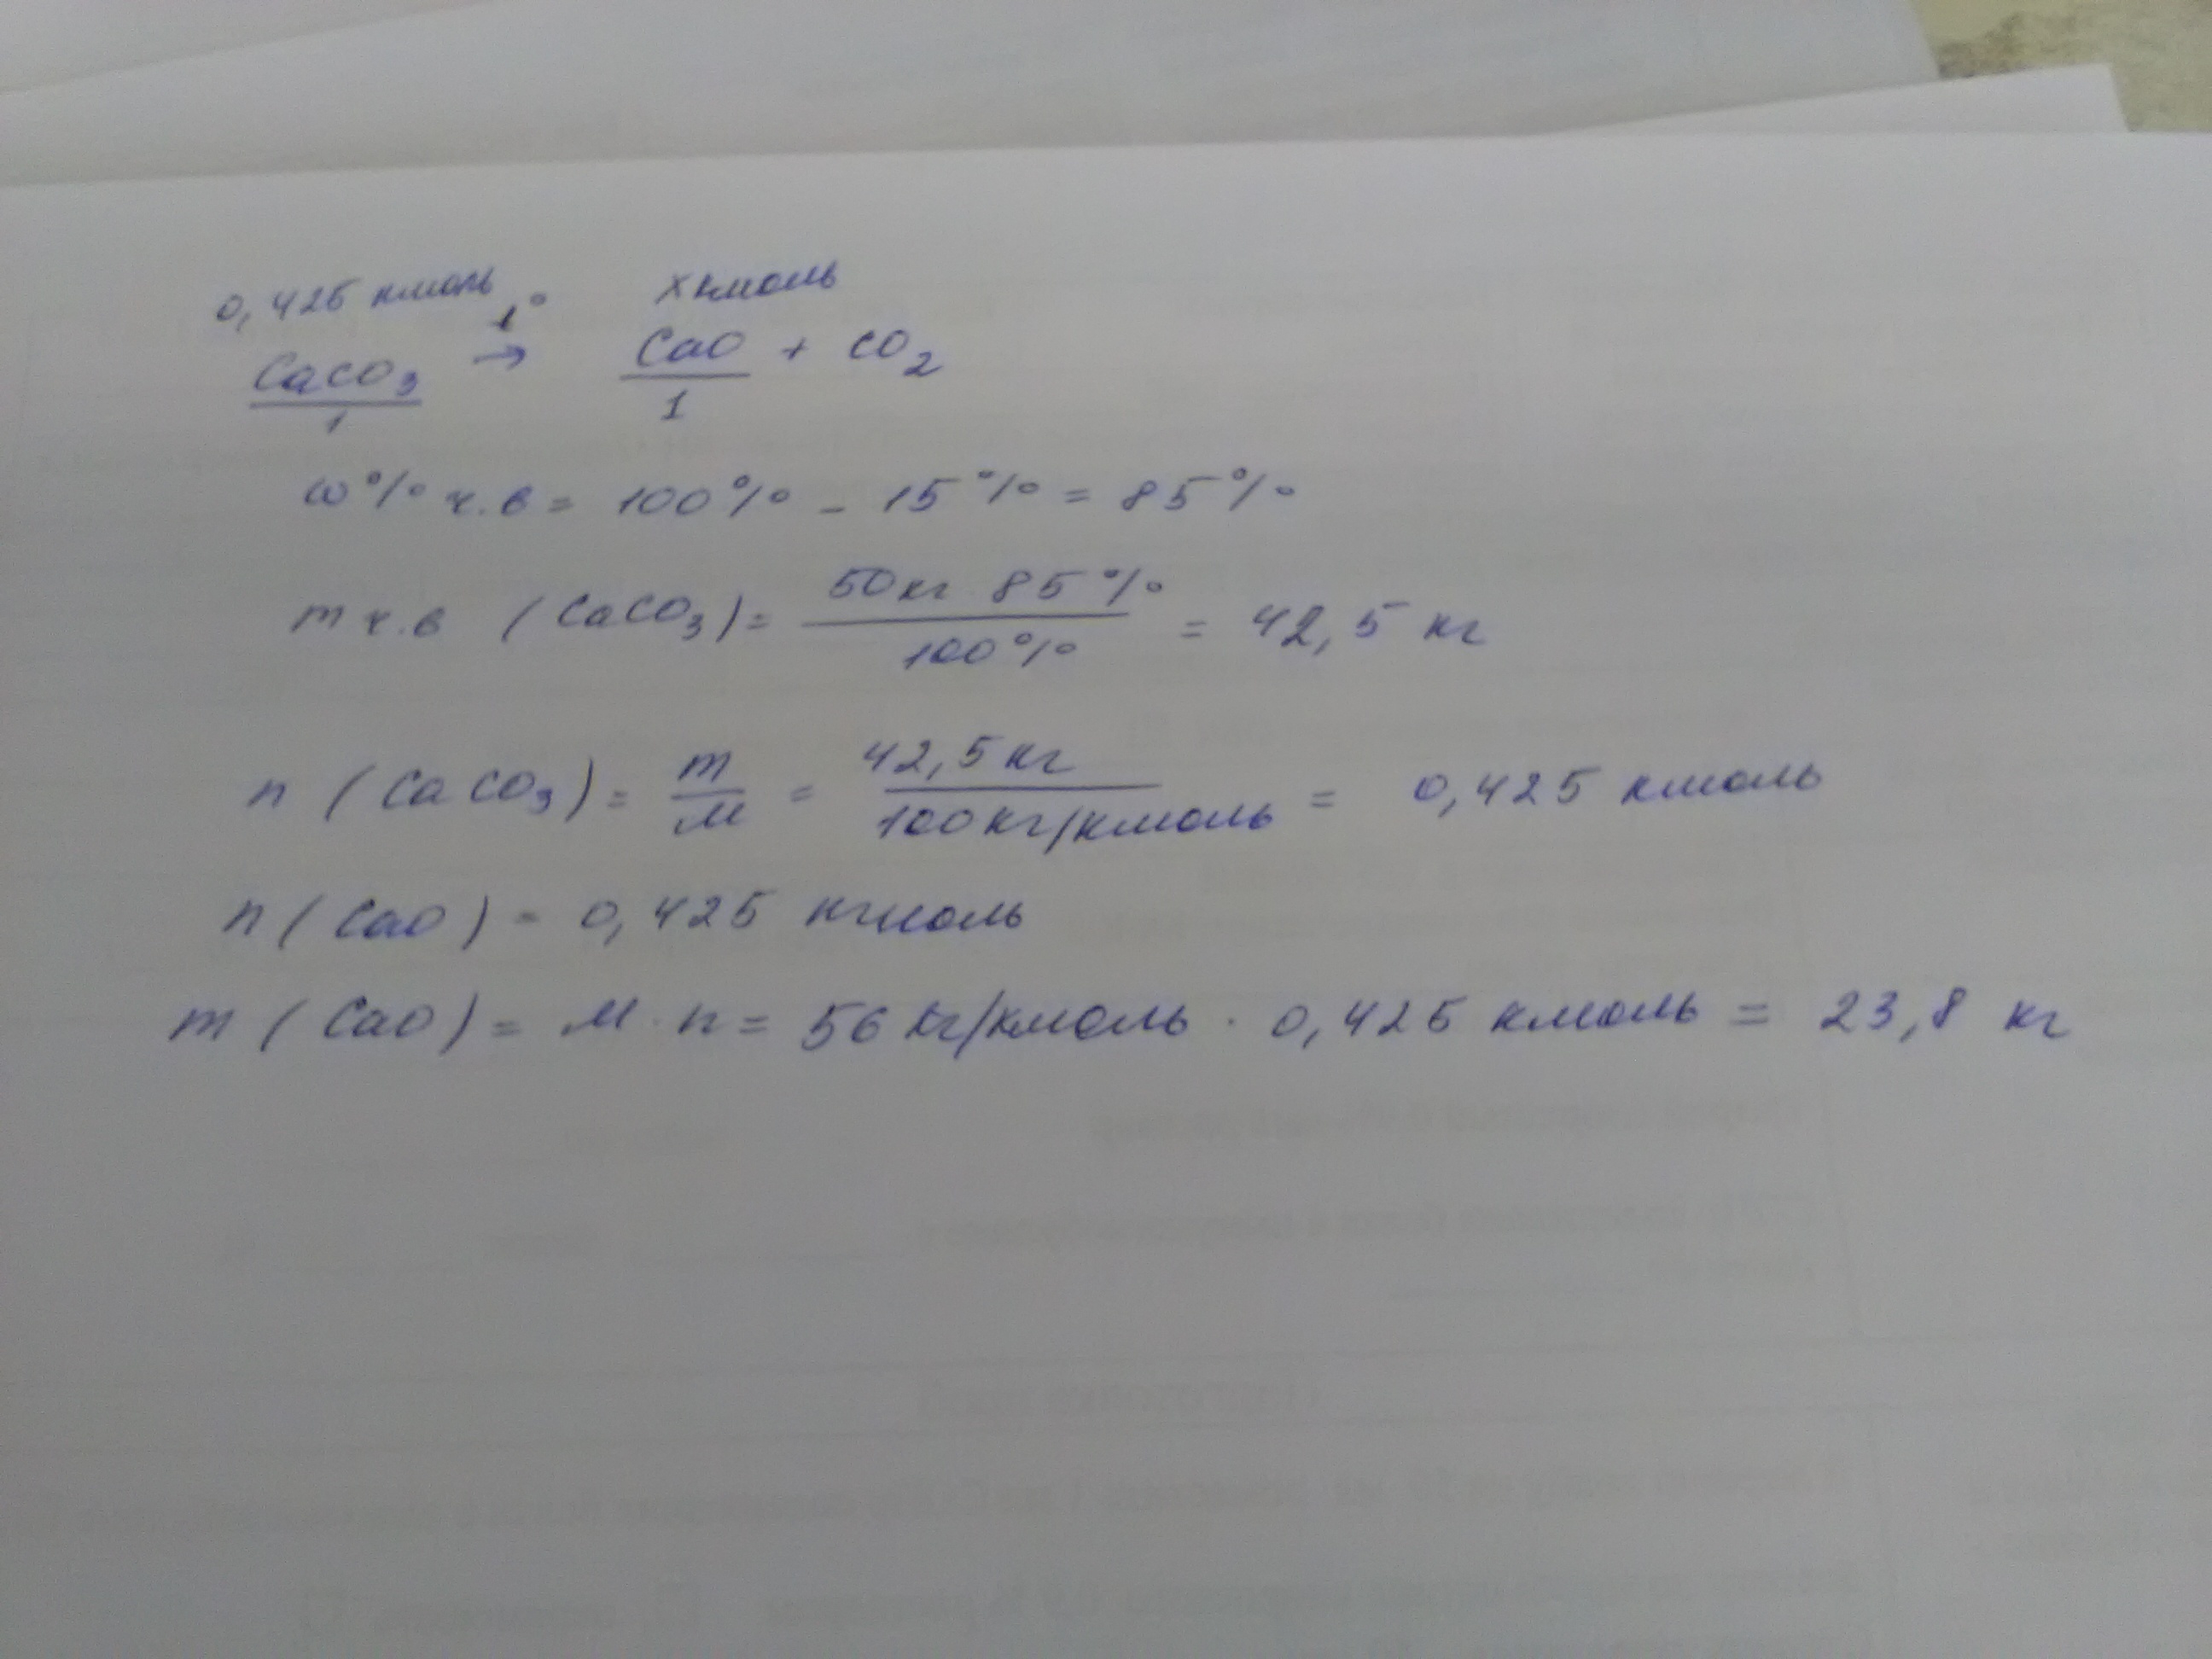 0,425 кмоль x кмоль
CaCO3 t° → CaO + CO2
1 1
ω% ч.в = 100% - 15% = 85%
m ч.в (CaCO3) = 50 кг · 85% / 100% = 42,5 кг
n (CaCO3) = m / M = 42,5 кг / 100 кг/кмоль = 0,425 кмоль
n (CaO) = 0,425 кгмоль
m (CaO) = M · n = 56 кг/кмоль · 0,425 кмоль = 23,8 кг